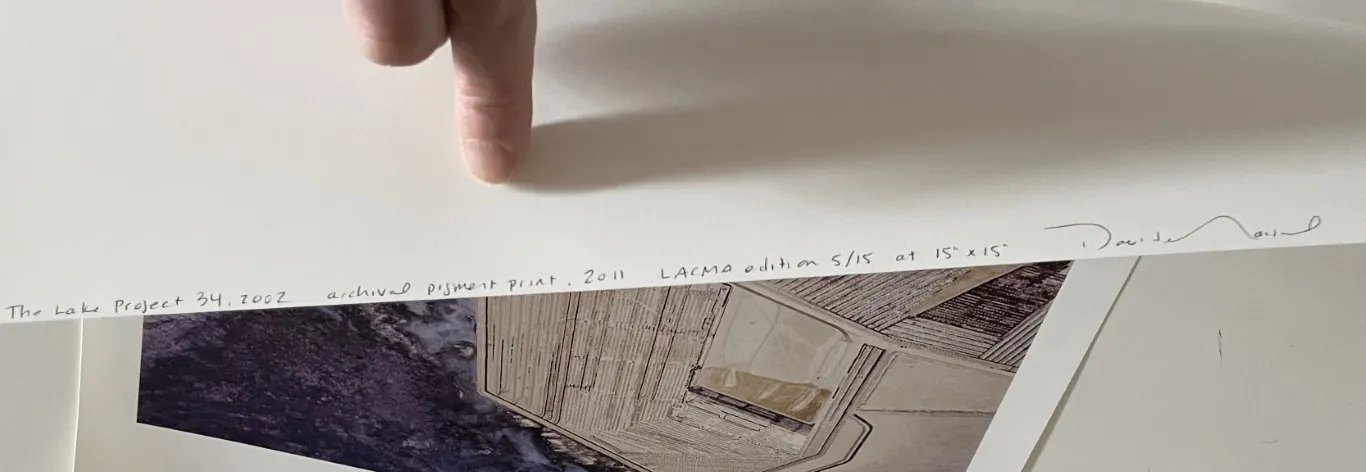 The Lake Project 34, 2002 archival pigment print, 2011 LACMA edition 5/15 at 15" x 15" David Maisel